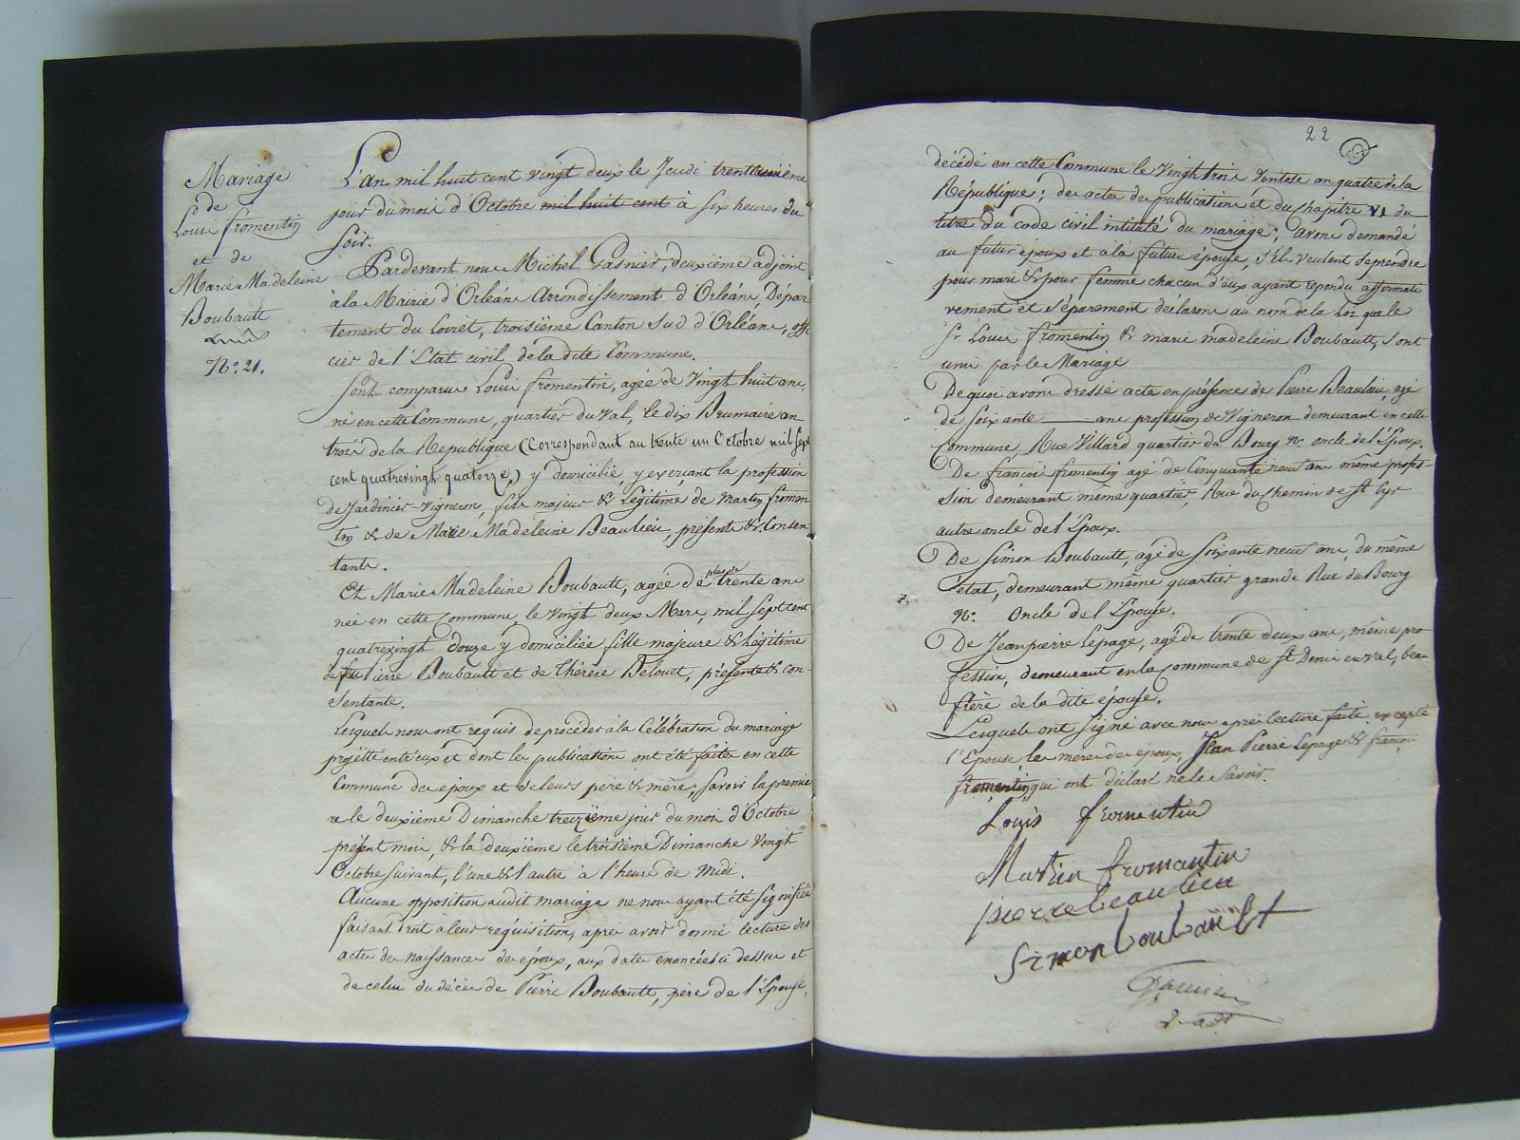 Mariage
de
Louis fromentin
et de
Marie Madeleine
Boubault
N.° 21.
L'An mil huit cent vingt deux le Jeudi trente unième
jour du mois d'Octobre mil huit cent à six heures du
soir.
Pardevant nous Michel Gasnier, deuxième adjoint
à la Mairie d'Orléans Arrondissement d'Orléans, Dépar
tement du Loiret, troisième Canton Sud d'Orléans, offi
cier de l'Etat civil de la dite Commune.
Sont comparus Louis fromentin, agée de Vingt huit ans,
né en cette Commune, quartier du Val, le dix Brumaire an
trois de la République (Correspondant au trente un Octobre mil sept
cent quatrevingt quatorze,) y domicilié, y exerçant la profession
de Jardinier-Vigneron, fils majeur & Légitime de Martin fromen
tin & de Marie Madeleine Beaulieu, présents & Consen
tants.
Et Marie Madeleine Boubault, agée de plus de trente ans
née en cette Commune, le Vingt deux Mars, mil sept cent
quatrevingt douze y domiciliée fille majeure & Légitime
de feu Pierre Boubault et de Thérèse Belouet, présente & con-
sentante.
Lesquels nous ont requis de procéder à la Célébration du mariage
projetté entr'eux et dont les publications ont été faites en cette
Commune des époux et de leurs père & mère, savoir la premie
re le deuxième Dimanche treizième jour du mois d'Octobre
présent mois, & la deuxième le troisième Dimanche Vingt
Octobre suivant, l'une & l'autre à l'heure de Midi.
Aucune opposition audit mariage ne nous ayant été signifiée
faisant droit à leur réquisition, après avoir donné lecture des
actes de naissances des époux, aux dates énoncées ci dessus et
de celui du décès de Pierre Boubault, père de l'Epouse,
22
décédé en cette Commune le Vingt trois Ventose an quatre de la
République; des actes des publications et du Chapitre VI du
titre du code civil intitulé du mariage; avons demandé
au futur époux et à la future épouse, s'ils veulent se prendre
pour mari & pour femme chacun d'eux ayant répondu affirmati
vement et séparement déclarons au nom de la Loi que le
Sr Louis fromentin & marie madeleine Boubault, sont
unis par le Mariage
De quoi avons dressé acte en présence de Pierre Beaulieu, agé
de soixante ans profession de Vigneron demeurant en cette
Commune, Rue Villard quartier du Bourg N.° oncle de l'Epoux.
De francois fromentin agé de Cinquante neuf ans même profes-
sion demeurant même quartier, Rue du Chemin de St Cyr
autre oncle de l'Epoux.
De Simon Boubault, agé de soixante neuf ans, du même
état, demeurant même quartier grande Rue du Bourg
N.° Oncle de l'Epouse.
De Jean pierre Lepage, agé de trente deux ans, même pro
fession, demeurant en la commune de St Denis en val, beau
frère de la dite épouse.
Lesquels ont signé avec nous après lecture faite, excepté
l'Epouse, les mères des epoux, Jean Pierre Lepage & francois
fromentin, qui ont déclaré ne le savoir.
Louis fromentin
Martin fromantin
pierre beaulieu
Simon boubault
Gasnier
2. adt